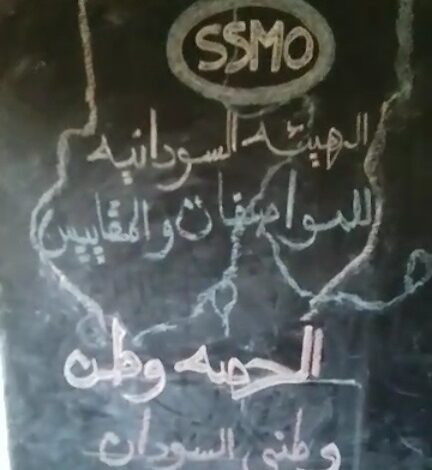 SSMO
الهيئه السودانيه
للمواصفات والمقاييس
الحصه وطن
وطني السودان